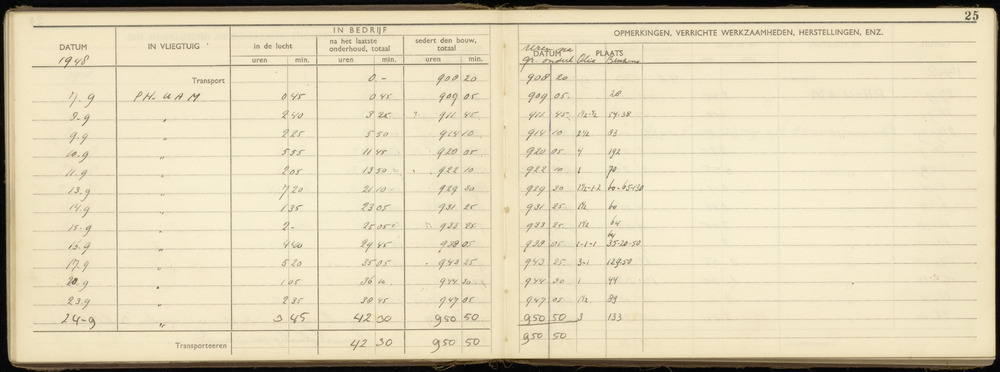 25
IN BEDRIJF
OPMERKINGEN, VERRICHTE WERKZAAMHEDEN, HERSTELLINGEN, ENZ.
DATUM IN VLIEGTUIG in de lucht na het laatste onderhoud, totaal sedert den bouw, totaal DATUM PLAATS
1948 uren min. uren min. uren min. gr. onderh Olie Benzine
Transport 0 - 908 20 908 20
7-9 PH-UAM 0 45 0 45 909 05 909 05 28
8-9 " 2 40 3 25 911 45 911 45 54-38
9-9 " 2 25 5 50 914 10 914 10 2½ 93
10-9 " 5 55 11 45 920 05 920 05 4 192
11-9 " 2 05 13 50 922 10 922 10 1 70
13-9 " 7 20 21 10 929 30 929 30 1½-1-2 60-65-130
14-9 " 1 35 23 05 931 25 931 25 1½ 60
15-9 " 2 - 25 05 933 25 933 25 1½ 64
64
" 4 40 29 45 938 05 938 05 1-1-1 35-20-50
17-9 " 5 20 35 05 943 25 943 25 3-1 129-50
20-9 " 1 05 36 10 944 30 944 30 1 44
23-9 " 2 35 38 45 947 05 947 05 1½ 99
24-9 " 3 45 42 30 950 50 950 50 3 133
Transporteeren 42 30 950 50 950 50